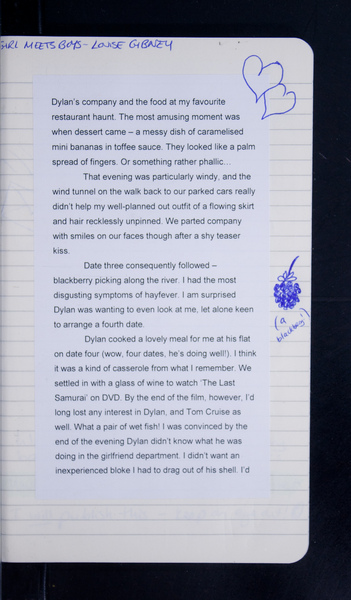 GIRL MEETS BOYS - LOUISE GIBNEY
Dylan's company and the food at my favourite
restaurant haunt. The most amusing moment was
when dessert came – a messy dish of caramelised
mini bananas in toffee sauce. They looked like a palm
spread of fingers. Or something rather phallic…
That evening was particularly windy, and the
wind tunnel on the walk back to our parked cars really
didn't help my well-planned out outfit of a flowing skirt
and hair recklessly unpinned. We parted company
with smiles on our faces though after a shy teaser
kiss.
Date three consequently followed –
blackberry picking along the river. I had the most
disgusting symptoms of hayfever. I am surprised
Dylan was wanting to even look at me, let alone keen
to arrange a fourth date.
(a
blackberry!)
Dylan cooked a lovely meal for me at his flat
on date four (wow, four dates, he's doing well!). I think
it was a kind of casserole from what I remember. We
settled in with a glass of wine to watch 'The Last
Samurai' on DVD. By the end of the film, however, I'd
long lost any interest in Dylan, and Tom Cruise as
well. What a pair of wet fish! I was convinced by the
end of the evening Dylan didn't know what he was
doing in the girlfriend department. I didn't want an
inexperienced bloke I had to drag out of his shell. I'd